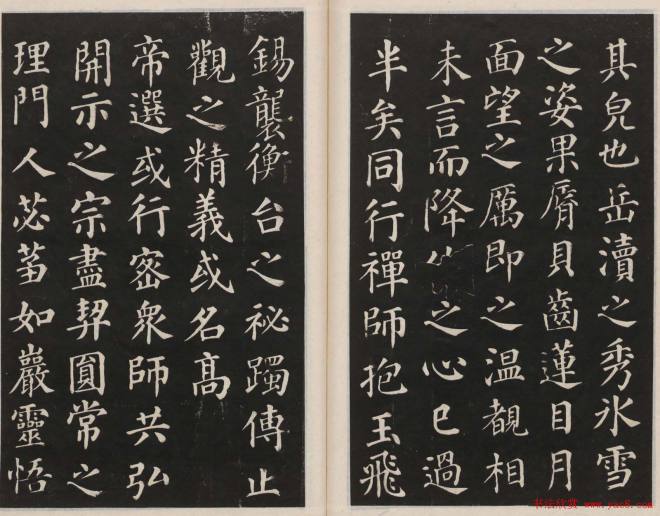 其皃也岳瀆之秀氷雪
之姿果脣貝齒蓮目月
面望之厲即之温覩相
未言而降之心已過
半矣同行禪師抱玉飛
錫襲衡台之祕躅傳止
觀之精義或名高
帝選或行密衆師共弘
開示之宗盡契圓常之
理門人苾蒭如巖靈悟
书法欣赏 www.yac8.com